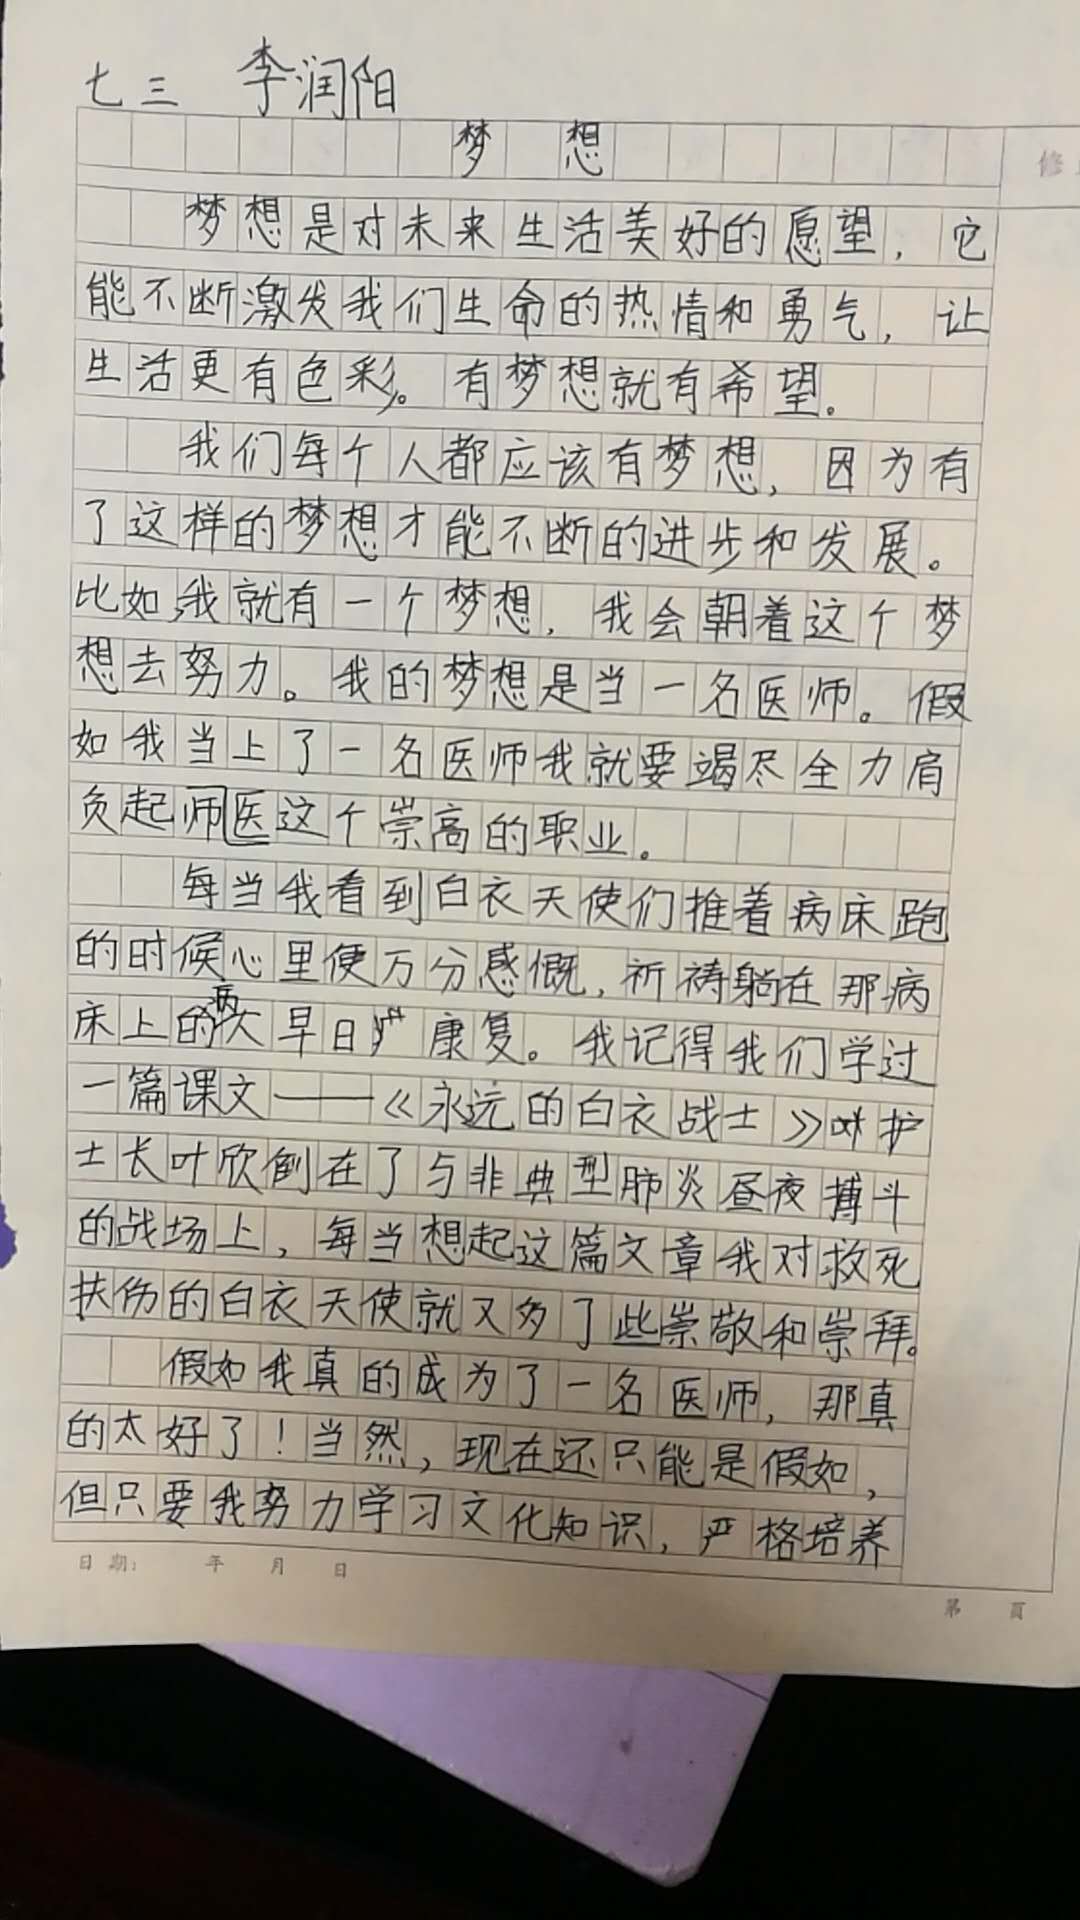 七三 李润阳
梦想
修
梦想是对未来生活美好的愿望，它
能不断激发我们生命的热情和勇气，让
生活更有色彩。有梦想就有希望。
我们每个人都应该有梦想，因为有
了这样的梦想才能不断的进步和发展。
比如，我就有一个梦想，我会朝着这个梦
想去努力。我的梦想是当一名医师。假
如我当上了一名医师我就要竭尽全力肩
负起师医这个崇高的职业。
每当我看到白衣天使们推着病床跑
的时候心里便万分感慨，祈祷躺在那病
床上的病人早日康复。我记得我们学过
一篇课文——《永远的白衣战士》护
士长叶欣倒在了与非典型肺炎昼夜搏斗
的战场上，每当想起这篇文章我对救死
扶伤的白衣天使就又多了些崇敬和崇拜。
假如我真的成为了一名医师，那真
的太好了！当然，现在还只能是假如，
但只要我努力学习文化知识，严格培养
日期： 年 月 日
第 页